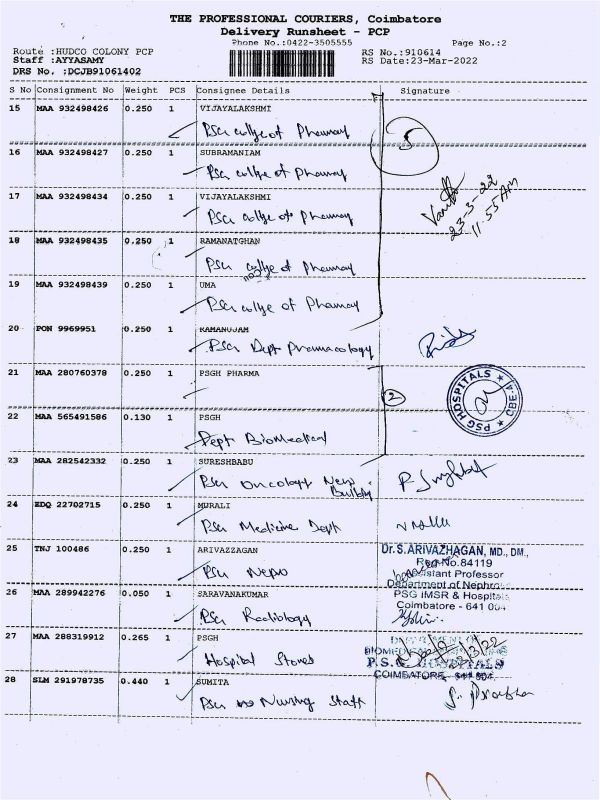 THE PROFESSIONAL COURIERS, Coimbatore
Delivery Runsheet - PCP
Phone No.:0422-3505555
Page No.:2
Route :HUDCO COLONY PCP
RS No.:910614
Staff :AYYASAMY
RS Date:23-Mar-2022
DRS No. :DCJB91061402
S No Consignment No Weight PCS Consignee Details Signature
15 MAA 932498426 0.250 1 VIJAYALAKSHMI
PSG college of Pharmacy
5
16 MAA 932498427 0.250 1 SUBRAMANIAM
PSG college of Pharmacy
17 MAA 932498434 0.250 1 VIJAYALAKSHMI
PSG college of Pharmacy
23-3-22
11.55 AM
18 MAA 932498435 0.250 1 RAMANATGHAN
PSG college of Pharmacy
19 MAA 932498439 0.250 1 UMA
PSG college of Pharmacy
20 PON 9969951 0.250 1 RAMANUJAM
PSG Dept Pharmacology
21 MAA 280760378 0.250 1 PSGH PHARMA
2
PSG HOSPITALS CBE-4
22 MAA 565491586 0.130 1 PSGH
Dept Biomedical
23 MAA 282542332 0.250 1 SURESHBABU
PSG Oncology New
Building
24 EDQ 22702715 0.250 1 MURALI
PSG Medicine Dept
25 TNJ 100486 0.250 1 ARIVAZZAGAN
PSG Nepro
Dr.S.ARIVAZHAGAN, MD., DM.,
Reg No.84119
Assistant Professor
Department of Nephro
PSG IMSR & Hospitals
Coimbatore - 641 004
26 MAA 289942276 0.050 1 SARAVANAKUMAR
PSG Radiology
27 MAA 288319912 0.265 1 PSGH
Hospital Stores
BIOMEDICAL
P.S.G HOSPITALS
COIMBATORE - 641 004
28 SLM 291978735 0.440 1 SUMITA
PSG Nursing Staff